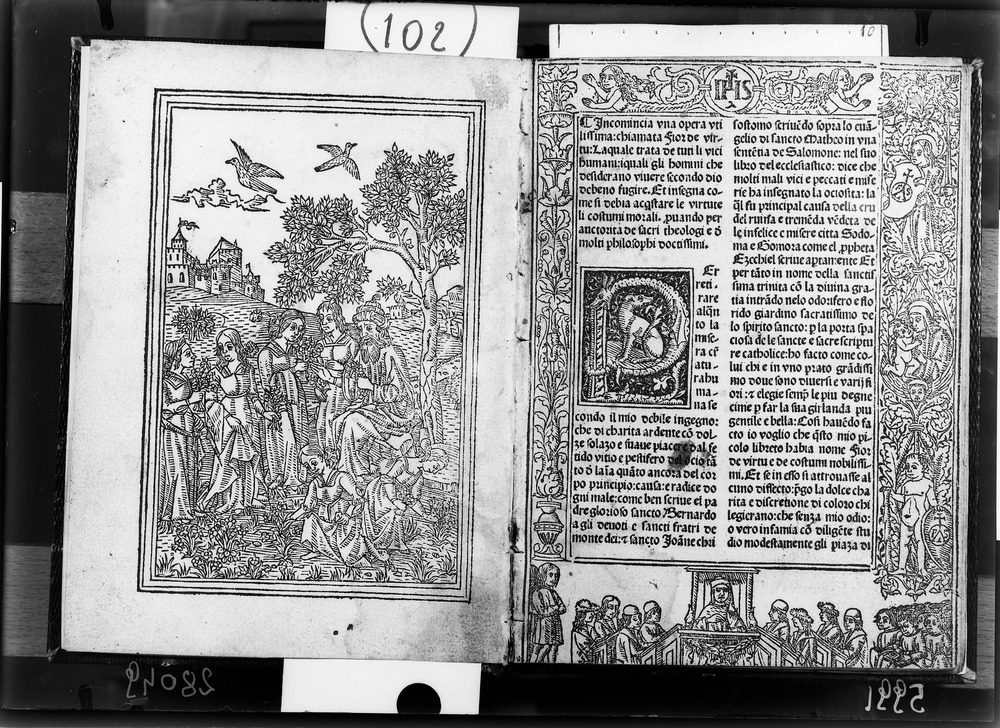 (102)
10
IHS
C Incomincia vna opera vti
lissima: chiamata Fior de vir-
tu: Laquale trata de tutti li vici
humani: iquali gli homini che
desiderano viuere secondo dio
debeno fugire. Et insegna co-
me si debia acqstare le virtute
li costumi morali, puando per
auctorita de sacri theologi e d
molti philosophi doctissimi.
PEr
reti-
rare
alqn
to la
mise-
ra cr
atu-
ra hu
ma-
na se
condo il mio debile ingegno:
che di charita ardente cō dol-
ze solazo e suaue piacere dal fe
tido vitio e pestifero del ocio tā
to d laīa quāto ancora del cor
po principio: causa: e radice do
gni male: come ben scriue el pa
dre glorioso sancto Bernardo
a gli deuoti e sancti fratri de
monte dei: ⁊ sancto Joāne chri
sostomo scriuēdo sopra lo euā-
gelio di sancto Matheo in vna
sentētia de Salomone: nel suo
libro del ecclesiastico: dice che
molti mali vici e peccati e mise
rie ha insegnato la ociosita: la
qĺ fu principal causa della cru
del ruina e tremēda vēdeta de
le infelice e misere citta Sodo-
ma e Gomora come el ꝓpheta
Ezechiel scriue aptamente Et
per tāto in nome della sanctis
sima trinita cō la diuina gra-
tia intrādo nelo odorifero e flo
rido giardino sacratissimo de
lo spirito sancto: p la porta spa
ciosa de le sancte e sacre scriptu
re catholice: ho facto come co-
lui chi e in vno prato grādissi
mo doue sono diuersi e varij fi
ori: ⁊ elegie semp le piu degne
cime p far la sua girlanda piu
gentile e bella: Cosi hauēdo fa
cto io voglio che qsto mio pi-
colo libreto habia nome Fior
de virtu e de costumi nobilissi-
mi. Et se in esso si attrouasse al
cuno diffecto: pgo la dolce cha
rita e discretione di coloro chi
legierano: che senza mio odio:
o vero infamia cō diligēte stu
dio modestamente gli piaza di
28049
5991